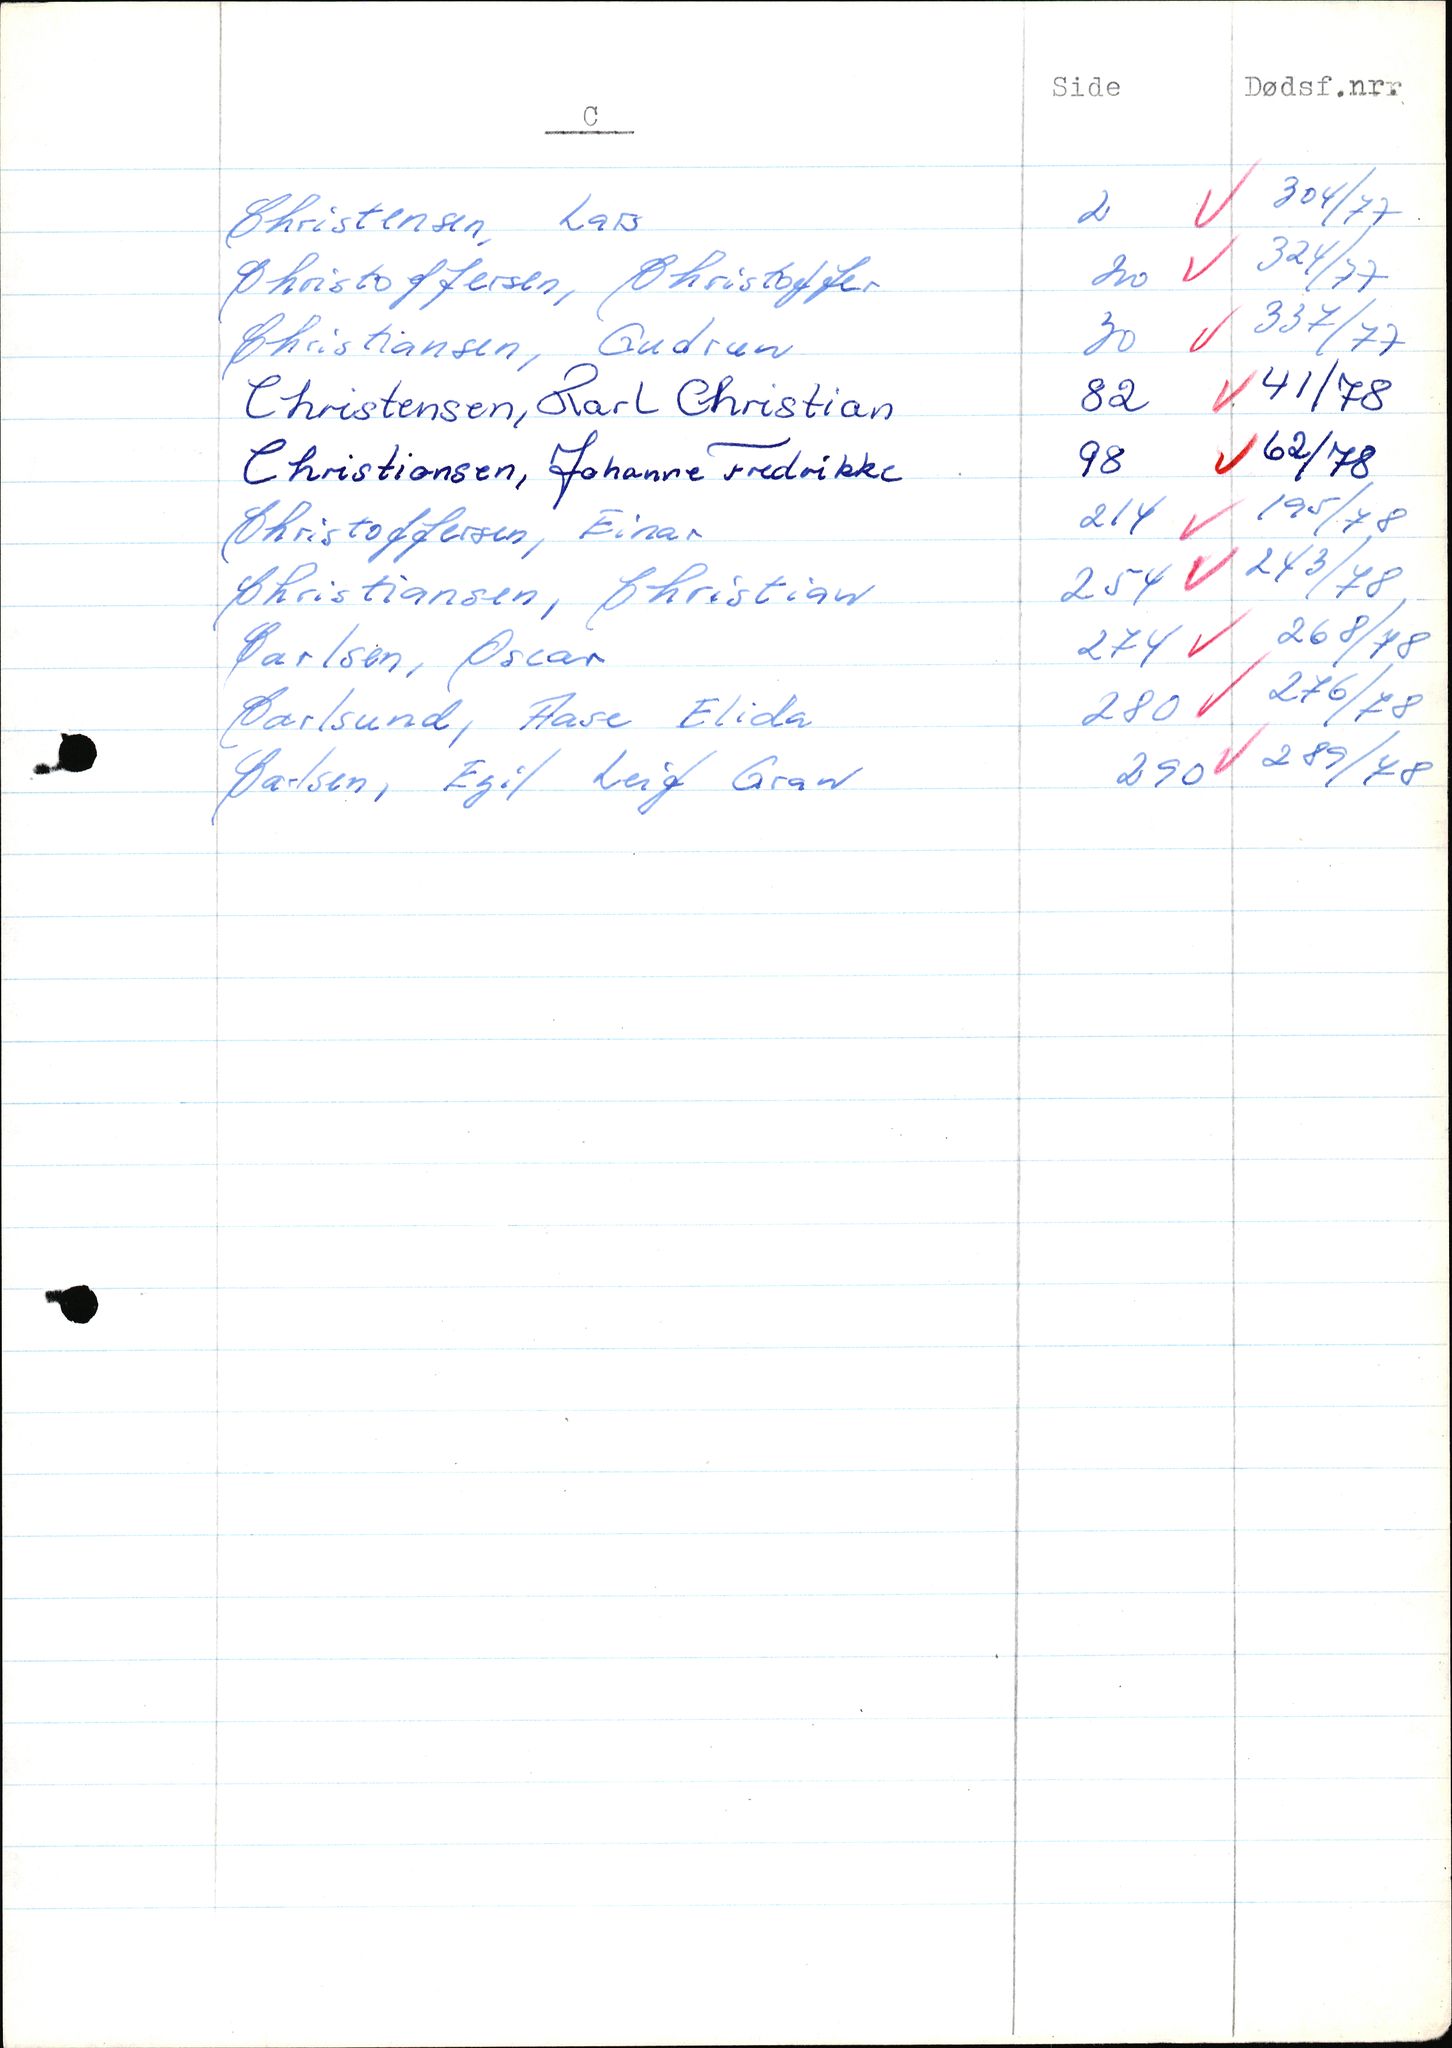 Side Dødsf.nrr
C
Christensen, Lars 2 304/77
Christoffersen, Christoffer 20 324/77
Christiansen, Gudrun 30 337/77
Christensen, Karl Christian 82 41/78
Christiansen, Johanne Fredrikke 98 62/78
Christoffersen, Einar 214 195/78
Christiansen, Christian 254 243/78
Carlsen, Oscar 274 268/78
Carlsund, Aase Elida 280 276/78
Carlsen, Egil Leif Gran 290 289/78